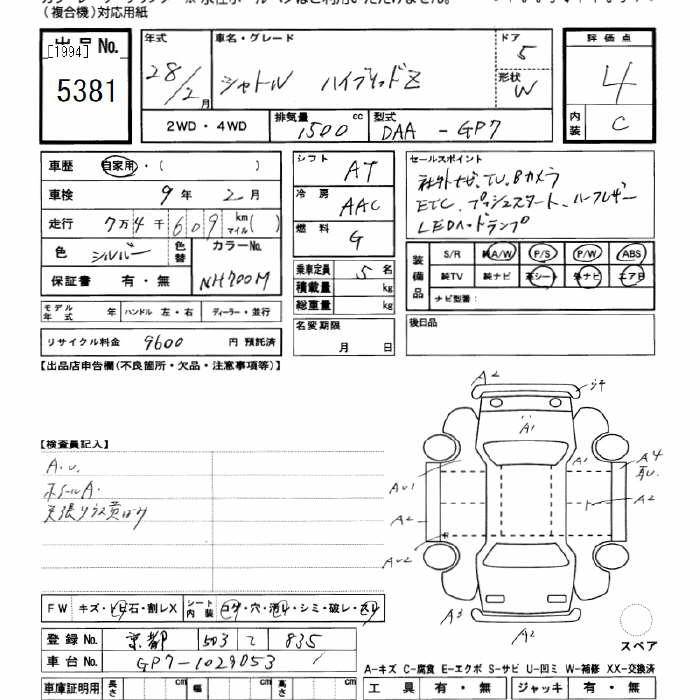 （複合機）対応用紙
出品No.
[1994]
5381
年式 28/2月
車名・グレード シャトル ハイブリッドZ
ドア 5
形状 W
評価点 4
内装 C
2WD・4WD
排気量 1500 cc
型式 DAA-GP7
車歴 自家用・( )
車検 9年 2月
走行 7万4千609 km マイル( )
色 シルバー 色替 カラーNo. NH700M
保証書 有・無
シフト AT
冷房 AAC
燃料 G
乗車定員 5名
積載量 kg
総重量 kg
名変期限 月 日
セールスポイント
社外ナビ、TV、Bカメラ
ETC、プッシュスタート、ハーフレザー
LEDヘッドランプ
装備品 S/R 純A/W P/S P/W ABS
純TV 純ナビ 革シート 外ナビ エアB
ナビ型番：
モデル年式 年 ハンドル 左・右 ディーラー・並行
リサイクル料金 9600 円 預託済
後日品
【出品店申告欄(不良箇所・欠品・注意事項等)】
【検査員記入】
A.U.
ホイールA.
天張りウス黄ばみ
A2
A1
A1
AU1
A2
AU2
A4
AU.
A2
A3
A2
FW キズ・トビ石・割レX シート内装 コゲ・穴・汚レ・シミ・破レ・スレ
登録No. 京都 503 て 835
車台No. GP7-1029053
スペア
A-キズ C-腐食 E-エクボ S-サビ U-凹ミ W-補修 XX-交換済
車庫証明用 長さ cm 幅 cm 高さ cm
工具 有・無 ジャッキ 有・無